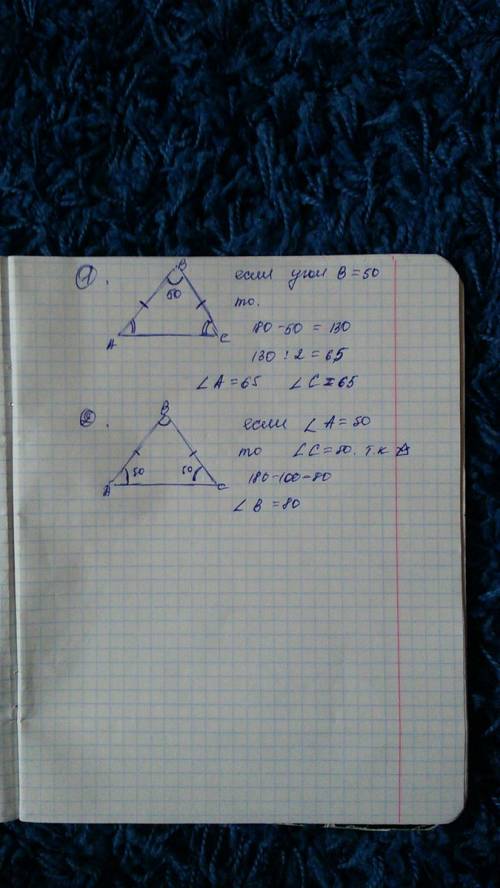 1.
B
50
A
C
если угол B = 50
то.
180 - 50 = 130
130 : 2 = 65
∠ A = 65 ∠ C = 65
2.
B
50
50
A
C
если ∠ A = 50
то ∠ C = 50. т.к
180-100-80
∠ B = 80